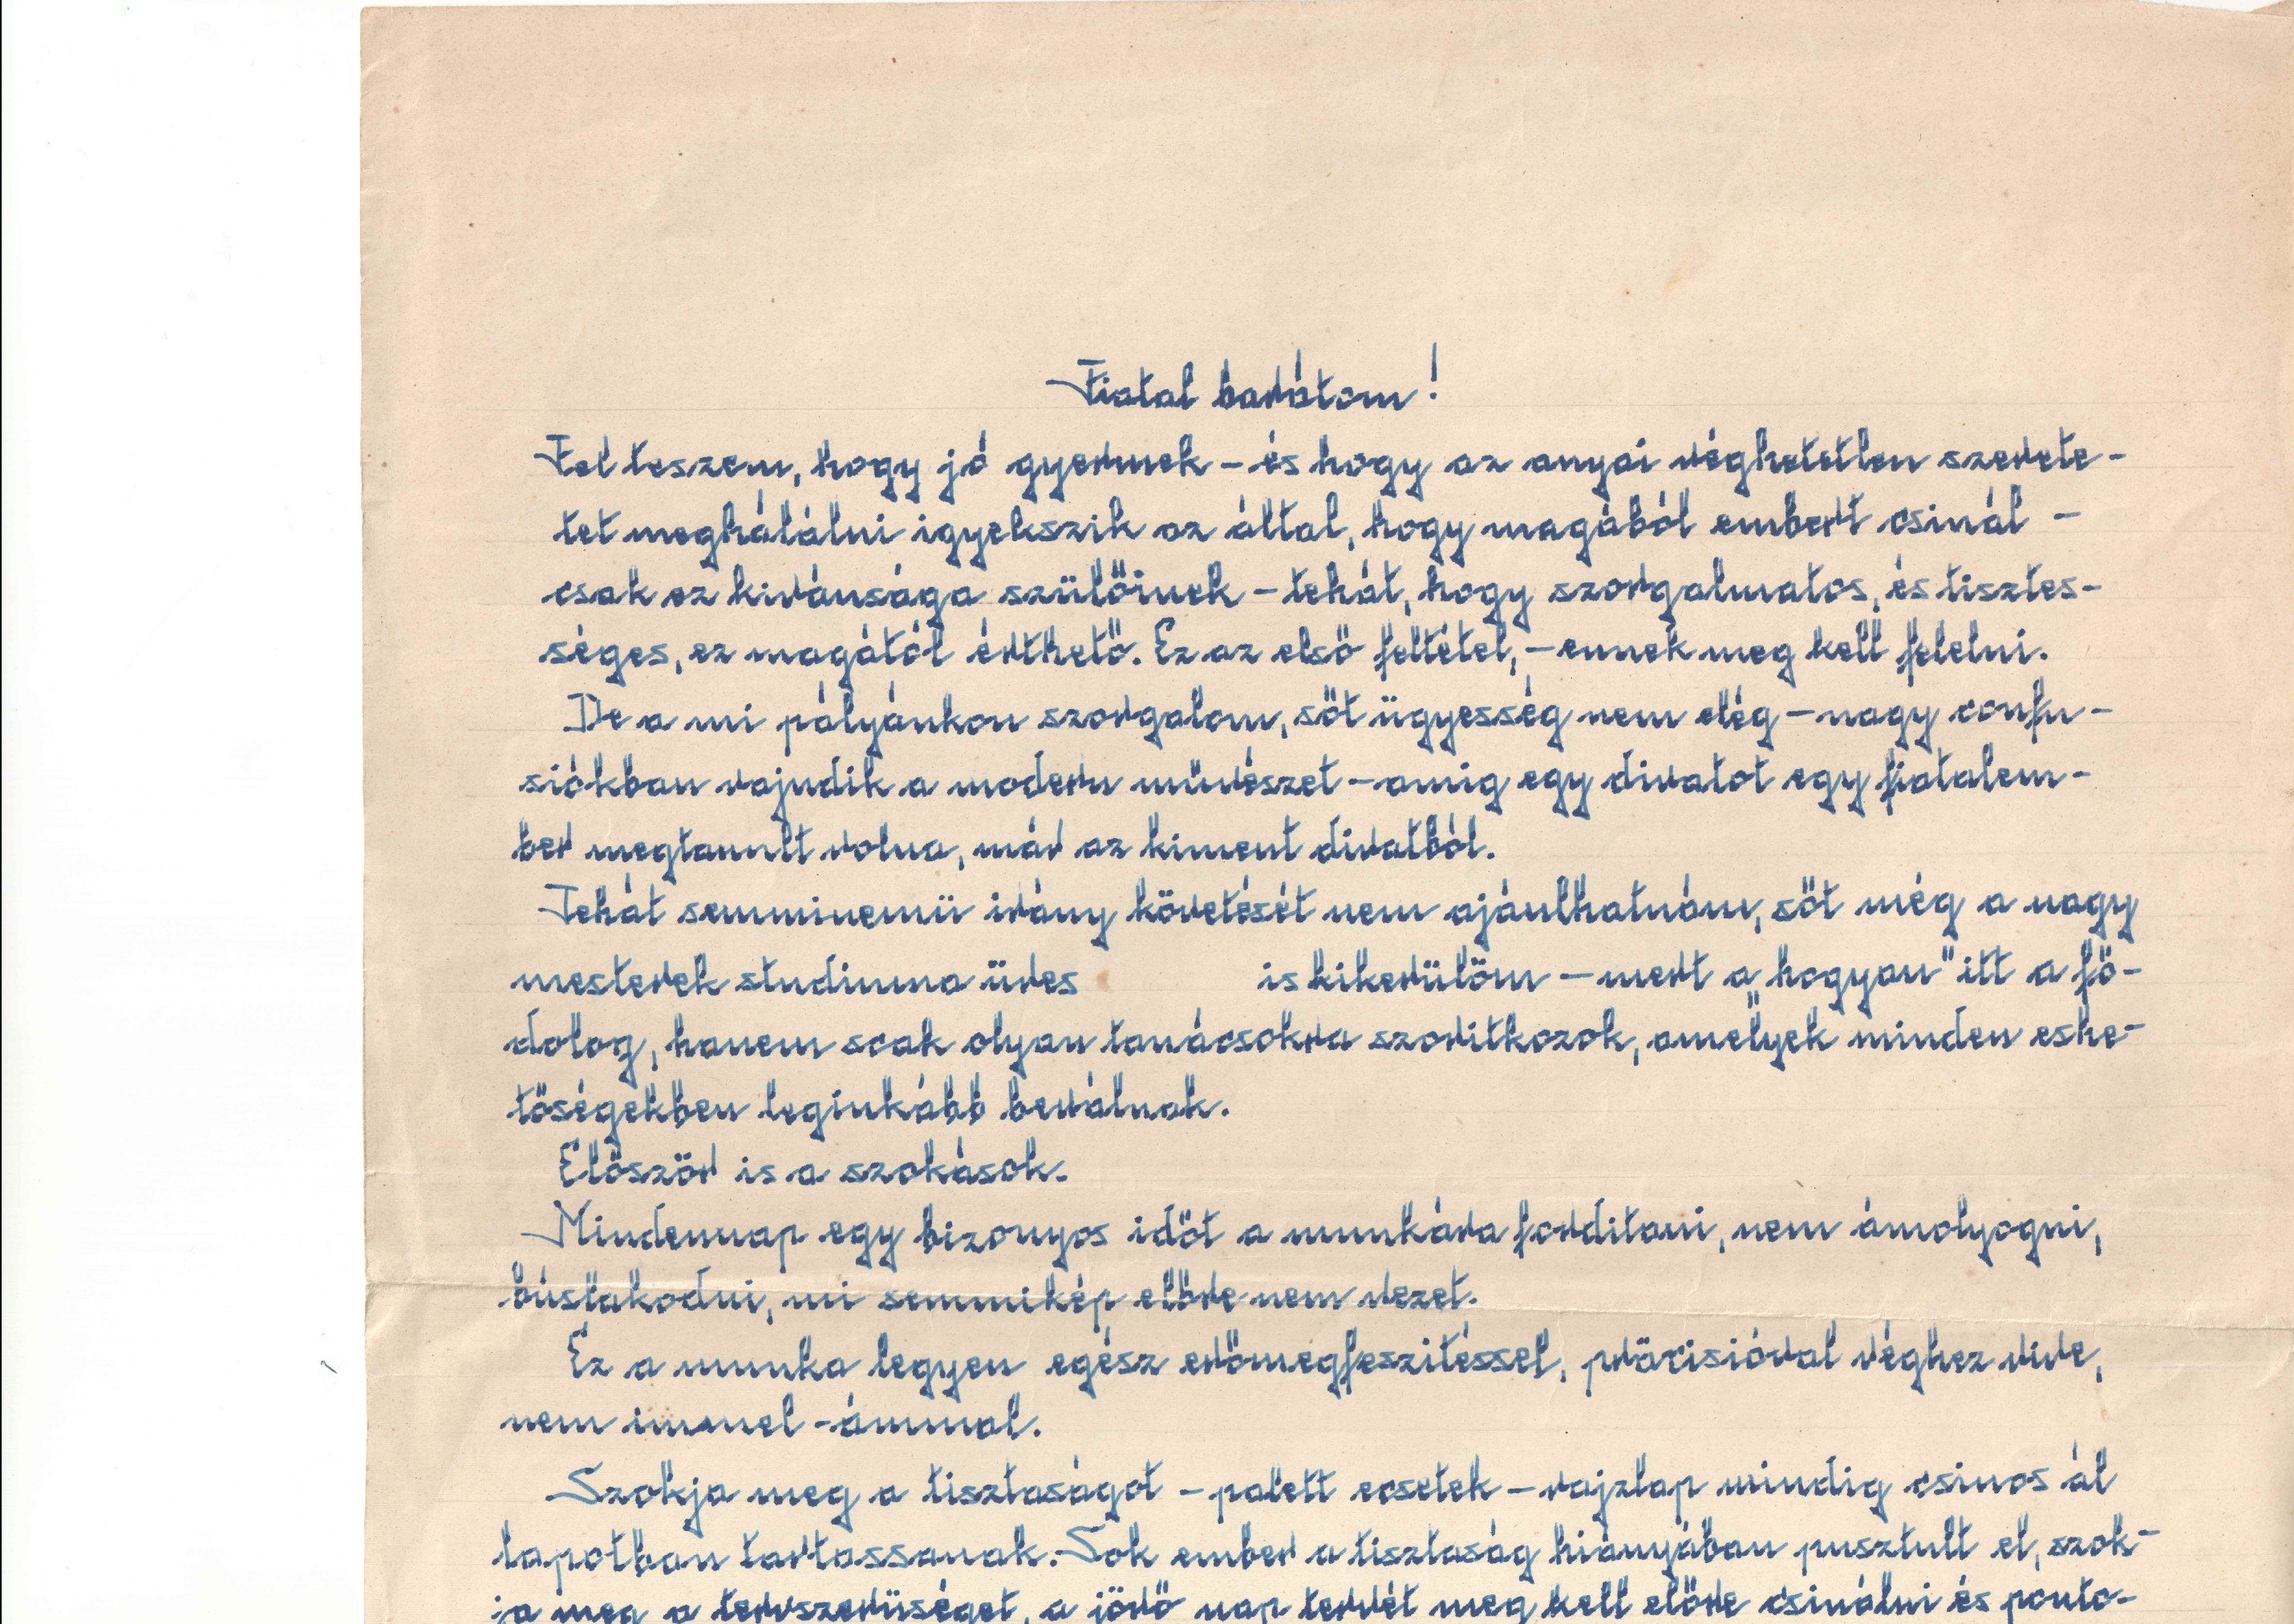 Fiatal barátom!
Fel teszem, hogy jó gyermek – és hogy az anyai véghetetlen szerete-
tet meghálálni igyekszik az által, hogy magából embert csinál –
csak ez kivánsága szülőinek – tehát, hogy szorgalmatos, és tisztes-
séges, ez magától érthető. Ez az első feltétel, – ennek meg kell felelni.
De a mi pályánkon szorgalom, sőt ügyesség nem elég – nagy confu-
siókban vajudik a modern művészet – amig egy divatot egy fiatalem-
ber megtanult volna, már az kiment divatból.
Tehát semminemü irány követését nem ajánlhatnám, sőt még a nagy
mesterek studiuma üres is kikerülöm – mert a „hogyan" itt a fő-
dolog, hanem scak olyan tanácsokra szoritkozok, amelyek minden eshe-
tőségekben leginkább beválnak.
Először is a szokások.
Mindennap egy bizonyos időt a munkára forditani, nem ámolyogni,
búslakodni, mi semmikép előre nem vezet.
Ez a munka legyen egész erőmegfeszitéssel, präcisióval véghez vive,
nem immel-ámmal.
Szokja meg a tisztaságot – palett ecsetek – rajzlap mindig csinos ál
lapotban tartassanak. Sok ember a tisztaság hiányában pusztult el, szok-
ja meg a tervszerüséget, a jövő nap tervét meg kell előre csinálni és ponto-